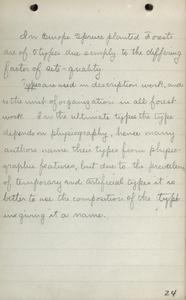 In Europe spruce planted forests
are of 5 types due simply to the differing
factor of site-quality
Types are used in description work, and
is the unit of organization in all forest
work. In the ultimate types the type
depends on physiography, hence many
authors name their types from physio-
graphic features, but due to the prevalence
of temporary and artificial types it is
better to use the composition of the type
in giving it a name.
24